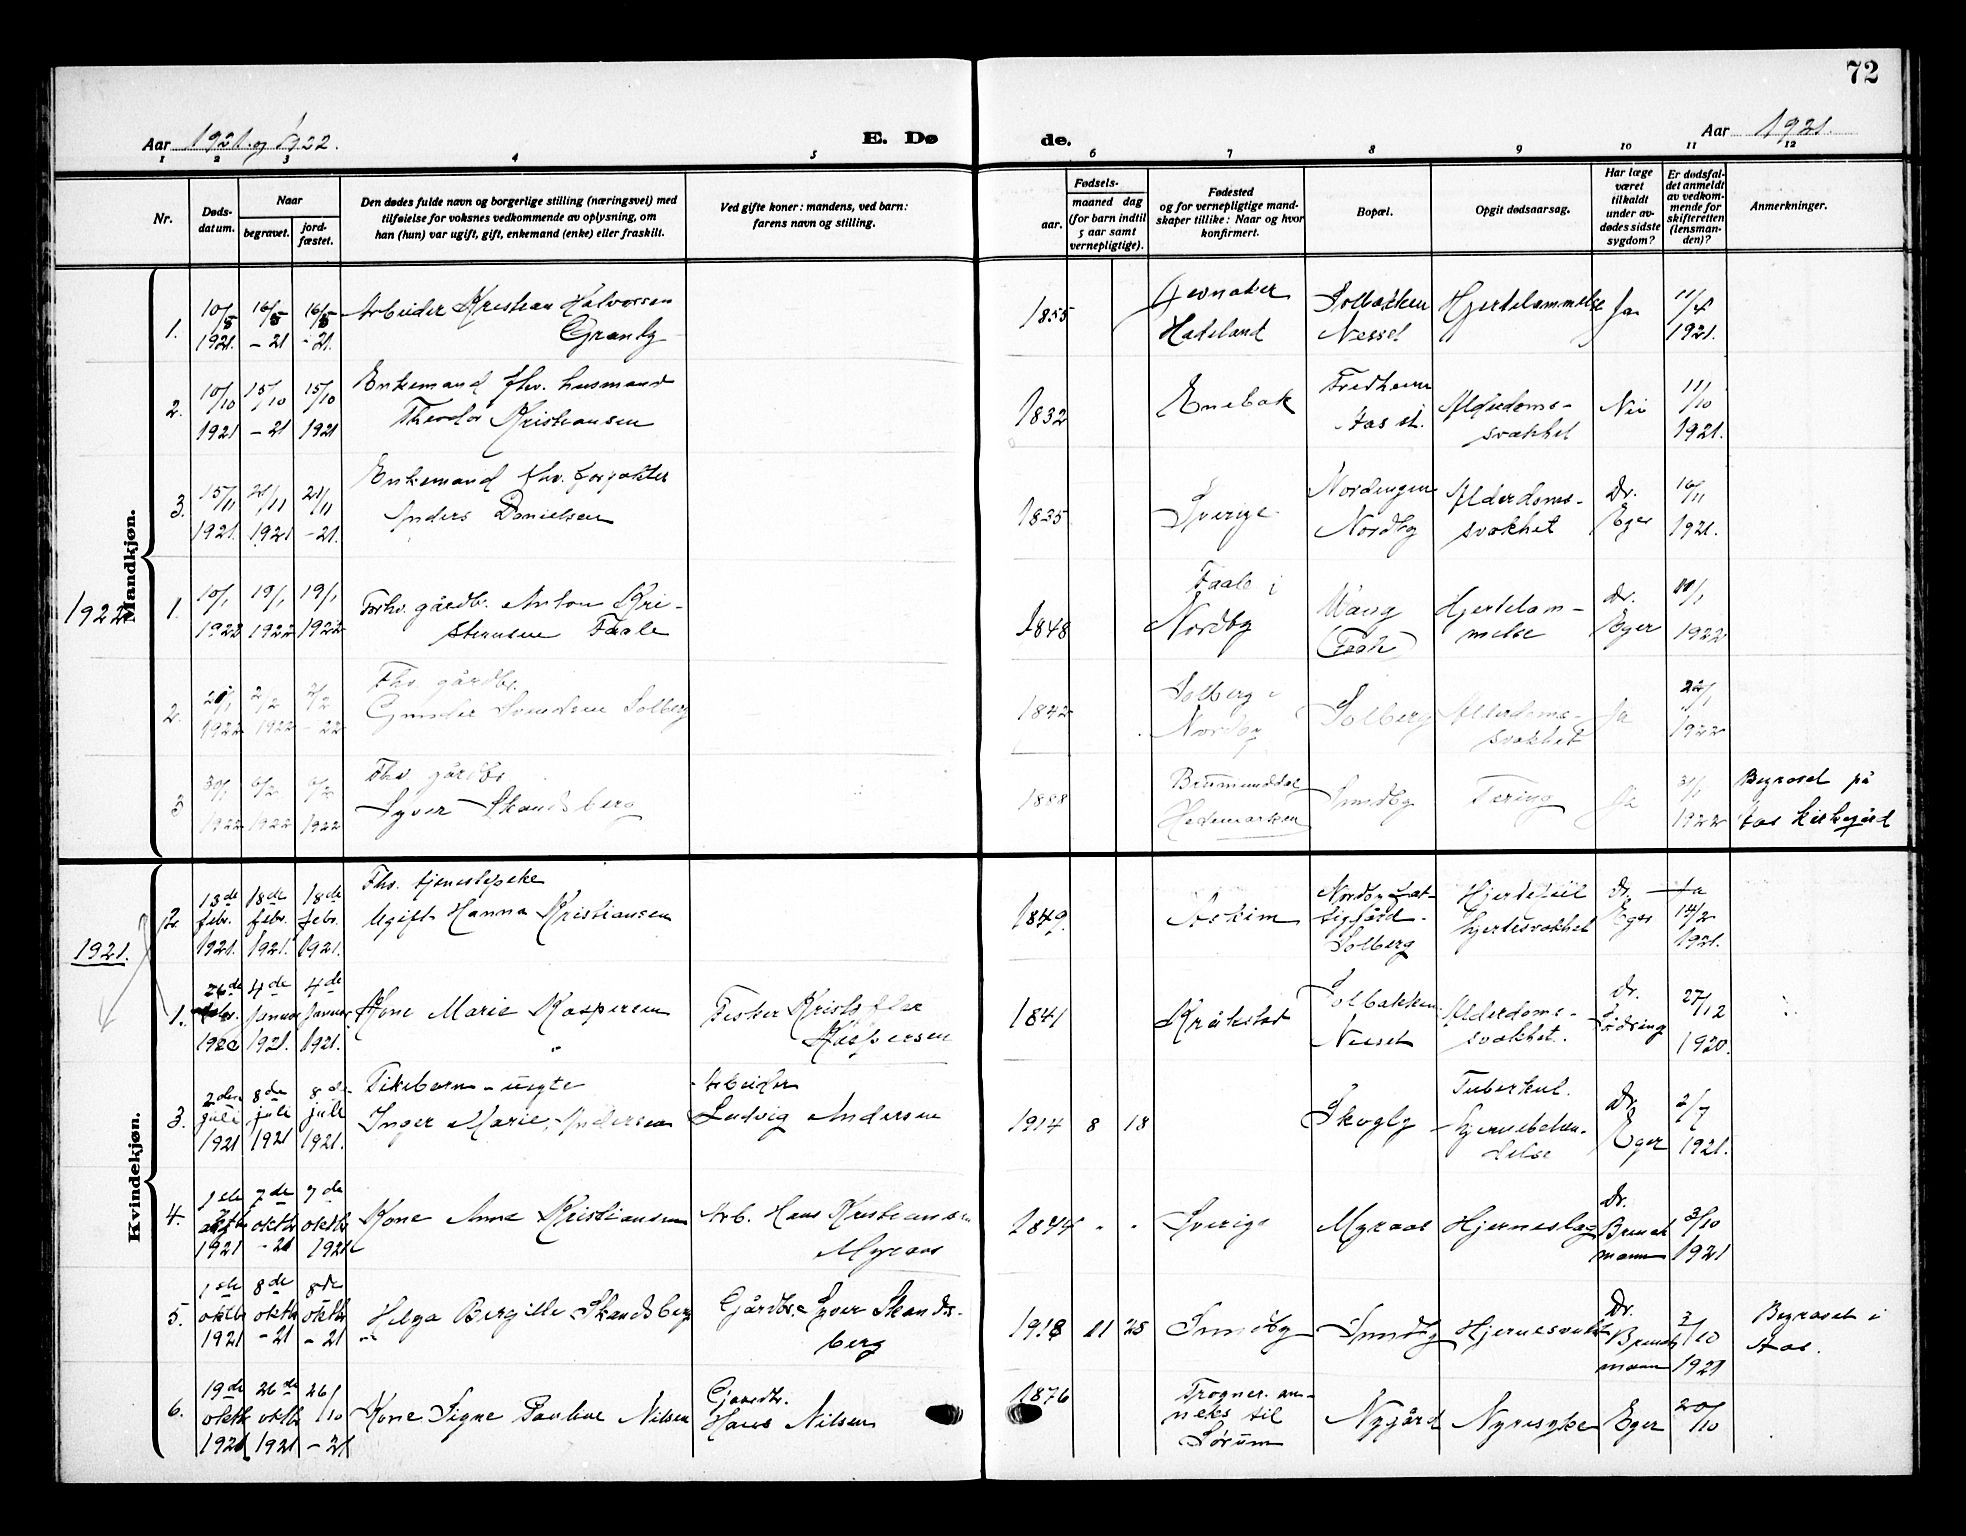 72
Aar 1921 og 1922.
E. Dø de.
Aar 1921.
1 2 3 4 5 6 7 8 9 10 11 12
Nr.
Døds-
datum.
Naar
begravet.
jord-
fæstet.
Den dødes fulde navn og borgerlige stilling (næringsvei) med
tilføielse for voksnes vedkommende av oplysning, om
han (hun) var ugift, gift, enkemand (enke) eller fraskilt.
Ved gifte koner: mandens, ved barn:
farens navn og stilling.
Fødsels-
aar.
maaned dag
(for barn indtil
5 aar samt
vernepligtige).
Fødested
og for vernepligtige mand-
skaper tillike: Naar og hvor
konfirmert.
Bopæl.
Opgit dødsaarsag.
Har læge
været
tilkaldt
under av-
dødes sidste
sygdom?
Er dødsfal-
det anmeldt
av vedkom-
mende for
skifteretten
(lensman-
den)?
Anmerkninger.
Mandkjøn.
1. 10/5 1921. 16/5 - 21 16/5 - 21.
Arbeider Kristian Halvorsen
Granly
1855
Jevnaker
Hadeland
Solbakken
Nesset
Hjertelammelse
Ja
11/5
1921.
2. 10/10 1921 15/10 - 21 15/10 1921
Enkemand fhv. husmand
Theodor Kristiansen
1832
Enebak
Fredheim
Aas st.
Alderdoms-
svakhet
Nei
11/10
1921.
3. 15/11 1921. 21/11 1921 21/11 - 21.
Enkemand fhv. forpakter
Anders Danielsen
1835
Sverige
Nordengen
Nordby
Alderdoms-
svakhet
Dr.
Eger
16/11
1921.
1922
1. 10/1 1922 19/1 1922 19/1 1922
Forhv. gårdb. Anton Kri-
stensen Faale
1848
Faale i
Nordby
Waug
(Faale)
Hjertelam-
melse
dr.
Eger
11/1
1922
2. 21/1 1922 2/2 1922 2/2 - 22
Fhv. gårdbr.
Gunder Svendsen Solberg
1842
Solberg i
Nordby
Solberg
Alderdoms-
svakhet
Ja
22/1
1922
3 30/1 1922 6/2 1922 6/2 1922
Fhv. gårdbr
Syver Skandsberg
1888
Brumunddal
Hedemarken
Sundby
Tæring
Ja
31/1
1922
Begravet på
Aas kirkegård
Kvindekjøn.
1921.
2. 13de febr. 1921. 18de febr. 1921. 18de febr. 1921.
Fhv. tjenestepike
Ugift Hanna Kristiansen
1849.
Askim
Nordby fat-
tiggård
Solberg
Hjertefeil
hjertesvakhet
dr.
Eger
Ja
14/2
1921.
1. 26de 1920 4de Januar 1921. 4de Januar 1921.
Kone Marie Kaspersen
Fisker Kristoffer
Kaspersen
1841
Kråkstad
Solbakken
Nesset
Alderdoms-
svakhet.
Dr.
Lødring
27/12
1920.
3. 2den juli 1921 8de juli 1921 8de juli 1921.
Pikebarn - uegte
Inger Marie Andersen
Arbeider
Ludvig Andersen
1914 8 18
Skogly
Tuberkul.
hjernebeten-
delse
Dr.
Eger
2/7
1921.
4. 1ste oktbr 1921 7de oktbr - 21 7de oktbr 1921
Kone Anne Kristiansen
Arb. Hans Kristiansen
Myraas
1844 " "
Sverige
Myraas
Hjerneslag
Dr.
Brinch
mann
3/10
1921
5. 1ste oktbr 1921 8de oktbr - 21 8de oktbr - 21
Helga Bergitte Skandsberg
Gårdbr. Syver Skands-
berg
1918 11 25
Sundby
Sundby
Hjernesvulst
Dr.
Brinch
mann
3/10
1921
Begravet i
Aas.
6. 19de oktbr 1921 26de oktbr 1921 26/10 - 21
Kone Signe Pauline Nilsen
Gjørdb.
Hans Nilsen
1876
Frogner. an-
neks til
Sørum
Nygård
Nyresyke
Eger
20/10